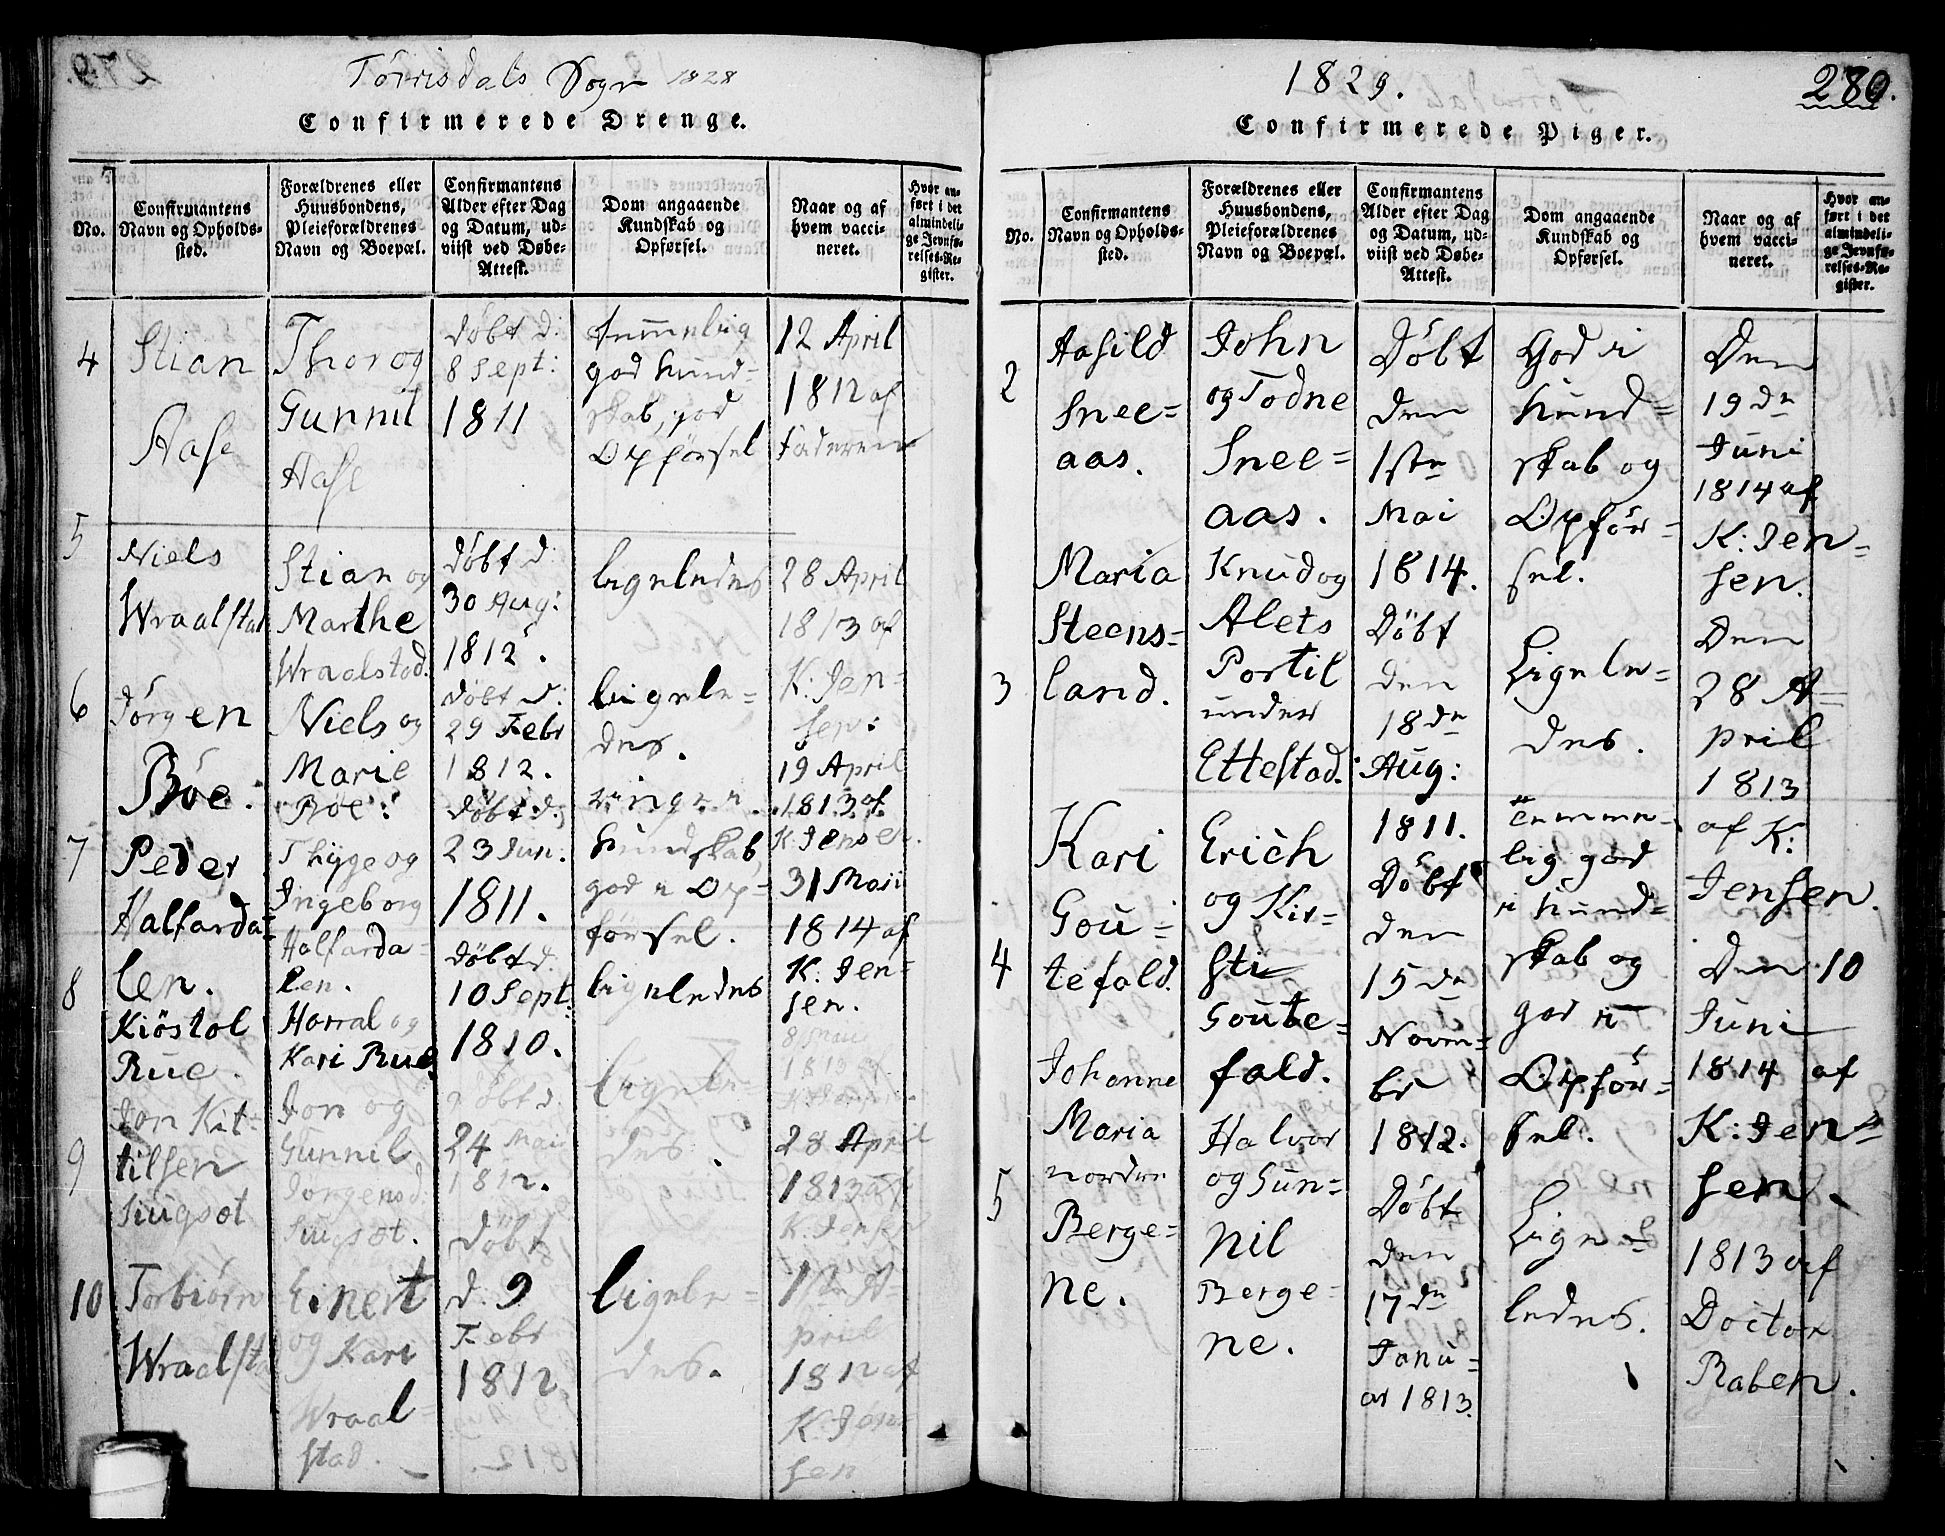 Törrisdals Sogn 1828
Confirmerede Drenge.
No.
Confirmantens
Navn og Opholds-
sted.
Forældrenes eller
Huusbondens,
Pleieforældrenes
Navn og Boepæl.
Confirmantens
Alder efter Dag
og Datum, ud-
viist ved Døbe-
Attest.
Dom angaaende
Kundskab og
Opførsel.
Naar og af
hvem vacci-
neret.
Hvor an-
ført i det
almindeli-
ge Jevnfø-
relses-Re-
gister.
4
Stian
Aase
Thor og
Gunnil
Aase
Döbt d:
8 Sept:
1811
temmelig
god Kund-
skab, god
Opförsel
12 April
1812 af
Faderen
5
Niels
Wraalstad
Stian og
Marthe
Wraalstad.
Döbt d:
30 Aug:
1812.
ligeledes
28 April
1813 af
K: Jen-
sen:
6
Jörgen
Böe.
Niels og
Marie
Böe:
Döbt d:
29 Febr
1812.
ligele=
des.
19 April
1813 af
K: Jensen.
7
Peder
Halfarda=
len.
Thyge og
Ingeborg
Halfarda-
len.
Döbt d:
23 Jun:
1811.
ringe
Kundskab,
god i Op-
försel.
31 Maii
1814 af
K: Jen=
sen.
8
Kiöstol
Rue.
Harral og
Kari Rue.
Döbt d.
10 Sept:
1810.
ligeledes
8 Maii
1813 af
K: Jensen
9
Jon Kit-
tilsen
Sugsot
Jon og
Gunnil
Jorgensd:
Sugsot.
Döbt d:
24 Maii
1812.
ligele-
des.
28 April
1813 af
K: Jensen
10
Torbiörn
Wraalstad
Einert
og Kari
Wraal-
stad.
Döbt
d. 9
Febr
1812.
ligele-
des.
1ste A-
pril
1812 af
K: Jen-
sen
1829.
280.
Confirmerede Piger.
No.
Confirmantens
Navn og Opholds-
sted.
Forældrenes eller
Huusbondens,
Pleieforældrenes
Navn og Boepæl.
Confirmantens
Alder efter Dag
og Datum, ud-
viist ved Døbe-
Attest.
Dom angaaende
Kundskab og
Opførsel.
Naar og af
hvem vacci-
neret.
Hvor an-
ført i det
almindeli-
ge Jevnfø-
relses-Re-
gister.
2
Aasild
Snee=
aas.
John
og Todne
Snee=
aas.
Döbt
den
1ste
Mai
1814.
God i
Kund=
skab og
Opför=
sel.
Den
19de
Juni
1814 af
K: Jen=
sen.
3
Maria
Steens=
land.
Knud og
Alets
Portil
under
Ettestad.
Döbt
den
18de
Aug:
1811.
Ligele=
des.
Den
28 A=
pril
1813
af K:
Jensen.
4
Kari
Gou=
tefald.
Erich
og Kir=
sti
Goute=
fald.
Döbt
den
15de
Novem=
br
1812.
Temme-
lig god
i Kund=
skab og
god i
Opför=
sel.
Den 10
Juni
1814 af
K: Jen=
sen.
5
Johanne
Maria
nordre
Berge=
ne.
Halvor
og Gun=
nil
Berge=
ne.
Döbt
den
17de
Janu=
ar 1813.
Lige=
ledes.
1813 af
Doctor
Raben.